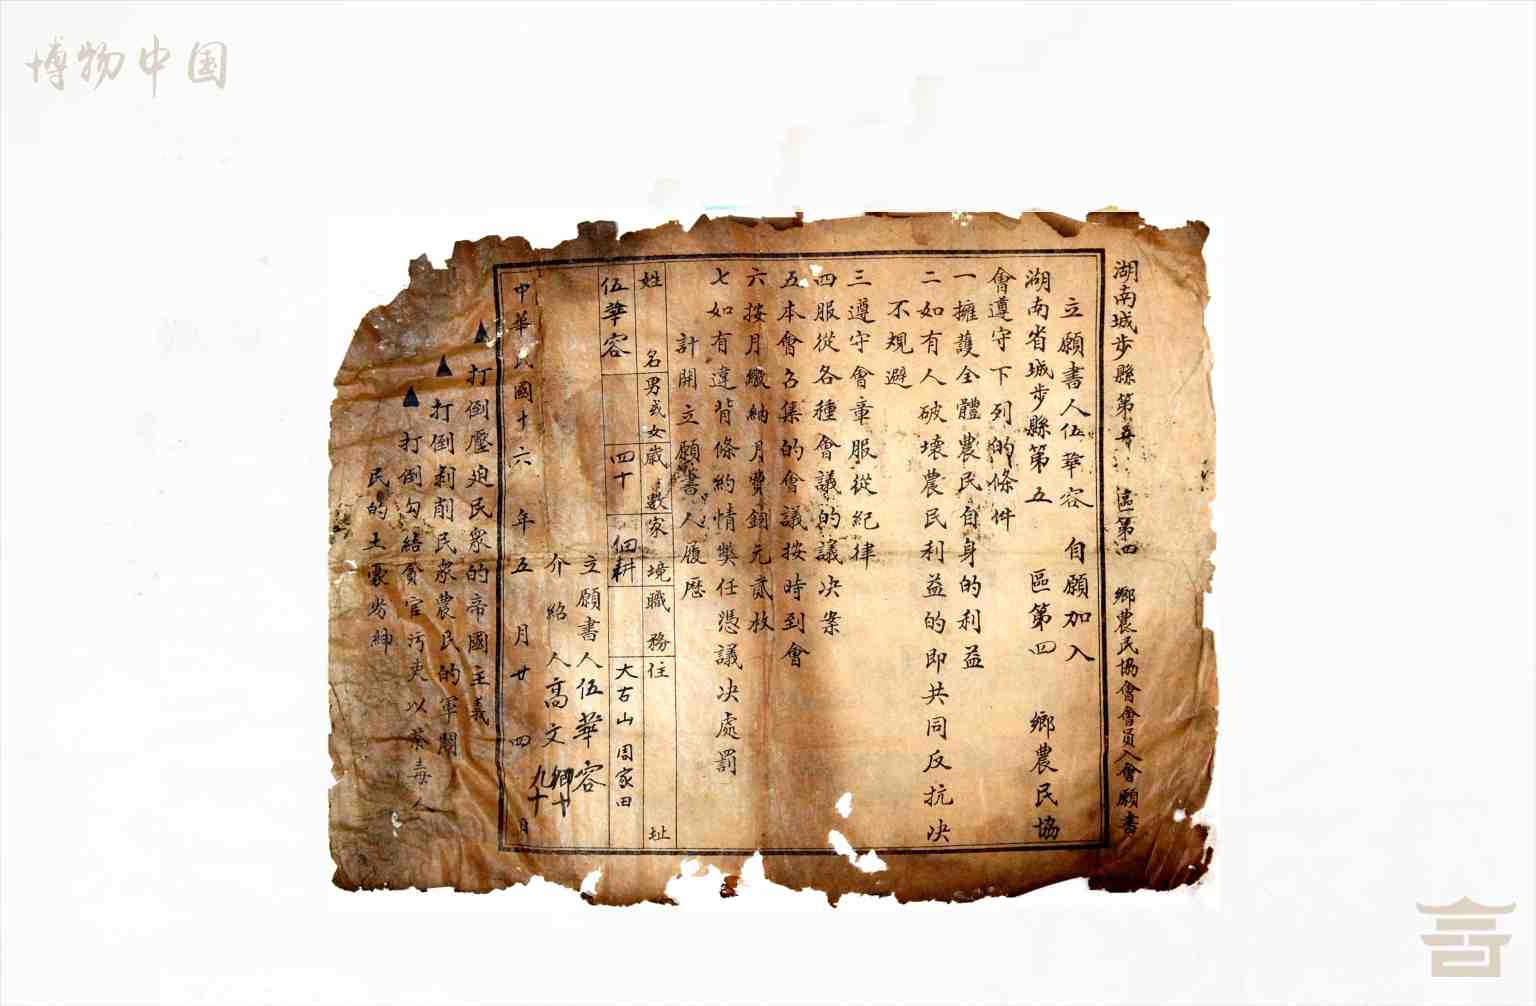 博物中国
湖南城步縣第五區第四鄉農民協會會員入會願書
立願書人伍華容自願加入
湖南省城步縣第五區第四鄉農民協
會遵守下列的條件
一擁護全體農民自身的利益
二如有人破壞農民利益的即共同反抗决
不規避
三遵守會章服從紀律
四服從各種會議的議决案
五本會召集的會議按時到會
六按月繳納月費銅元貳枚
七如有違背條約情獘任憑議决處罰
計開立願書人履歷
姓名 男或女 歲數 家境 職務 住址
伍華容 四十 佃耕 大古山周家田
立願書人伍華容
介紹人高文卿十
九十
中華民國十六年五月廿四日
▲打倒壓迫民眾的帝國主義
▲打倒剥削民眾農民的軍閥
▲打倒勾結貪官污吏以荼毒人
民的土豪劣紳